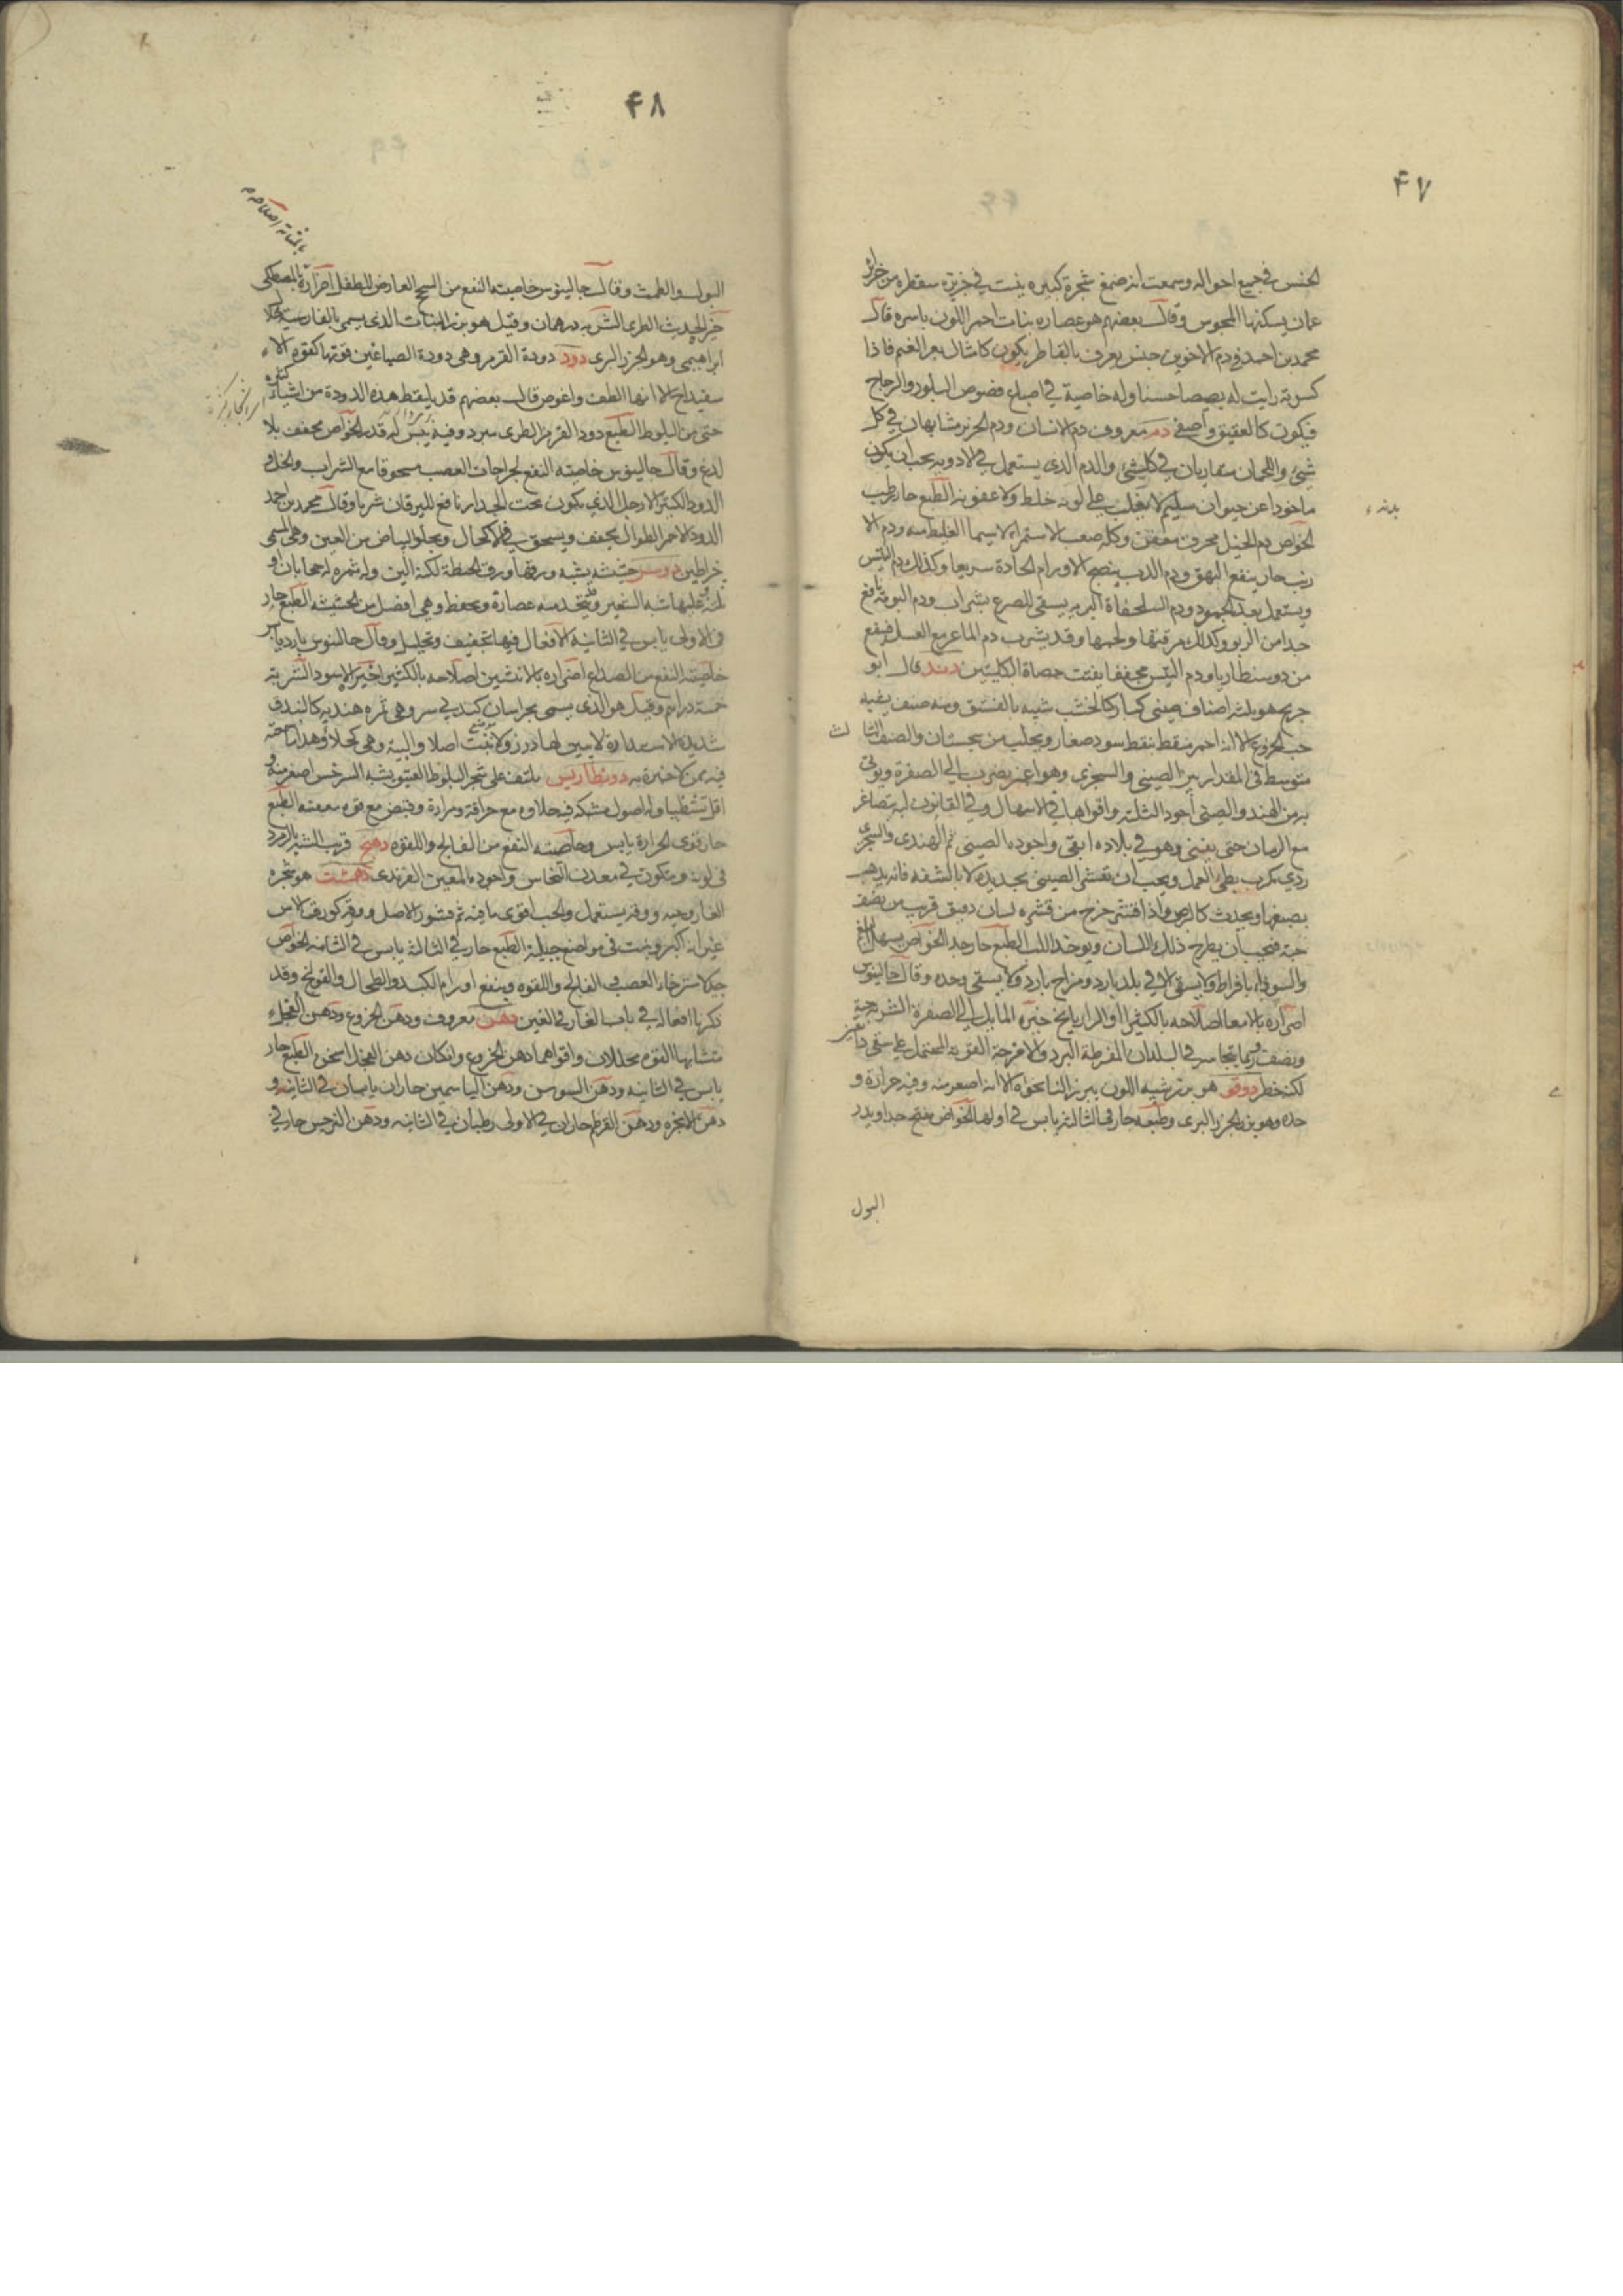 ۴۷
الجنس في جميع احواله وسمعت انه صمغ شجرة كبيره ينبت في جزيرة سقطره من جزائر
عمان يسكنها المجوس وقال بعضهم هو عصاره نبات احمر اللون باسره قال
محمد بن احمد في دم الاخوين جنس يعرف بالقاطر يكون كامثال بعر الغنم فاذا
كسرته رايت له بصيصا حسنا وله خاصية في اصباغ فصوص البلور والزجاج
فيكون كالعقيق واصفى دم معروف دم الانسان ودم الخنزير متشابهان في كل
شيئ واللحمان متقاربان في كل شيئ والدم الذي يستعمل في الادويه يجب ان يكون
ماخوذا عن حيوان سليم لا يغلب على لونه خلط ولا عفونه الطبع حار رطب
الخواص دم الخيل محرق معفن وكله صعب الاستمراء لاسيما الغليظ منه ودم الا
رنب حار ينفع البهق ودم الدب ينضج الاورام الحادة سريعا وكذلك دم التيس
ويستعمل بعد الجمود ودم السلحفاة البريه يسقى للصرع بشراب ودم البومة نافع
جدا من الربو وكذلك مرقتها ولحمها وقد يشرب دم الماعز مع العسل فينفع
من دوسنطاريا ودم التيس مجففا يفتت حصاة الكليتين دند قال ابو
جريج هو ثلثه اصناف صينى كبار كالخشب شبيه بالفستق ومنه صنف يشبه
حب الخروع الا انه احمر منقط بنقط سود صغار ويجلب من سجستان والصنف الثا لث
متوسط في المقدار بين الصينى والسجزى وهو اغبر يضرب الى الصفرة ويؤتى
به من الهند والصينى اجود الثلثة واقواها في الاسهال وفي القانون انه يتصاغر
مع الزمان حتى يفنى وهو في بلاده ابقى واجوده الصينى ثم الهندى والسجزى
ردى مكرب بطى العمل ويجب ان يقشر الصينى بحديدة لا بالشفه فانه يذهب
بصبغها ويحدث كالبرص واذا قشر خرج من قشره لسان دقيق قريب من نصف
حبة فيجب ان يطرح ذلك اللسان ويوخذ اللب الطبع حار جدا الخواص يسهل البلغم
والسوداء بافراط ولا يسقى الا في بلد بارد ومزاج بارد ولا يسقى وحده وقال جالينوس
اضراره بالامعا اصلاحه بالكثيرا او الرازيانج خيره المايل الى الصفرة الشربه حبة
ونصف وربما يتجاسر في البلدان المفرطة البرد والامزجة القويه المحتمل على سقى دانقين
لكنه خطر دوقو هو بزر شبيه اللون ببزر النانخواه الا انه اصغر منه وفيه حرارة و
حده وهو بزر الجزر البرى وطبعه حار في الثالثة يابس في اولها الخواص مفتح جدا ويدر
البول
۴۸
البول والطمث وقال جالينوس خاصيته النفع من السحج العارض للطفل اضراره بالمثانة اصلاحه بالمصطكى
خيره الحديث الطرى الشربه درهمان وقيل هو بزر النبات الذى يسمى بالفارسية كلاه
ابراهيمى وهو الجزر البرى دود دودة القرمز وهى دودة الصباغين قوتها كقوة الا
سفيداج الا انها الطف واغوص قال بعضهم قد يلقط هذه الدودة من اشياء كثيره
حتى من البلوط الطبع دود القرمز الطرى مبرد وفيه يبس له قدر الخواص مجفف بلا
لذع وقال جالينوس خاصيته النفع لجراحات العصب مسحوقا مع الشراب والخل و
الدود الكثير الارجل الذى يكون تحت الجدار نافع لليرقان شربا وقال محمد بن احمد
الدود الاحمر الطوال يجفف ويسحق في الاكحال ويجلو البياض من العين وهى تسمى
خراطين دوسر حشيشه يشبه ورقها ورق الحنطة لكنه الين وله ثمره له حجابان او
ثلثه عليها شبه الشعير ويتخذ منه عصارة ويحفظ وهى افضل من الحشيشه الطبع حار
في الاولى يابس في الثانية الافعال فيها تجفيف وتحليل وقال جالينوس بارد يابس
خاصيته النفع من الصداع اضراره بالانثيين اصلاحه بالكثيرا خيره الاسود الشربه
خمسة دراهم وقيل هو الذى يسمى بخراسان
فيه دونطاريس يلتف على شجر البلوط العتيق يشبه السرخس اصغر منه و
اقل تشظيا وله اصول مشتبكه فيها حلاوه مع حرافة ومرارة وقبض مع قوه معفنه الطبع
حار قوى الحرارة يابس وخاصيته النفع من الفالج واللقوه دهنج قريب الشبه بالزمرد
في لونه ويتكون في معدن النحاس واجوده المعين الفرندى دهمست هو شجره
الغار وحبه وورقه يستعمل والحب اقوى ما فيه ثم قشور الاصل وورقه كورق الاس
غير انه اكبر وينبت في مواضع جبلية الطبع حار في الثالثة يابس في الثانيه الخواص
جيد لاسترخاء العصب في الفالج واللقوه وينفع اورام الكبد والطحال والقولنج وقد
ذكرنا افعاله في باب الغار في الغين دهن معروف ودهن الخروع ودهن الفجل
متشابها القوه محللان واقواهما دهن الخروع وان كان دهن الفجل اسخن الطبع حار
يابس في الثانيه ودهن السوسن ودهن الياسمين حاران يابسان في الثانيه و
دهن الانجره ودهن القرطم حاران في الاولى رطبان في الثانيه ودهن النرجس حار في